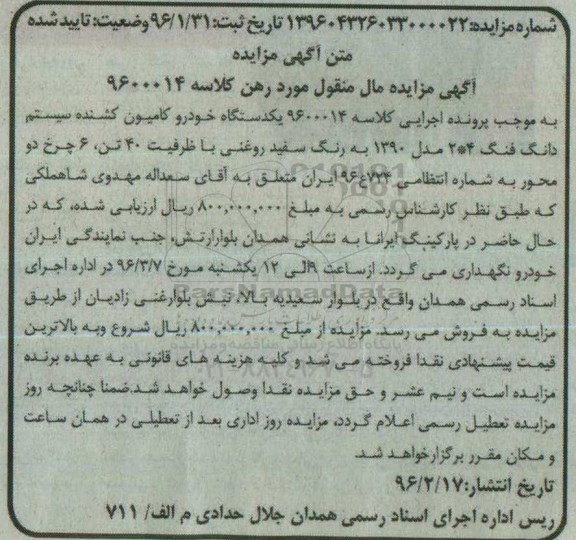 شماره مزایده: ۱۳۹۶۰۴۳۲۶۰۳۳۰۰۰۰۲۲ تاریخ ثبت: ۹۶/۱/۳۱ وضعیت: تایید شده
متن آگهی مزایده
آگهی مزایده مال منقول مورد رهن کلاسه ۹۶۰۰۰۱۴
به موجب پرونده اجرایی کلاسه ۹۶۰۰۰۱۴ یکدستگاه خودرو کامیون کشنده سیستم
دانگ فنگ ۴*۲ مدل ۱۳۹۰ به رنگ سفید روغنی با ظرفیت ۴۰ تن، ۶ چرخ دو
محور به شماره انتظامی ایران متعلق به آقای سعداله مهدوی شاهملکی
که طبق نظر کارشناس رسمی به مبلغ ۸۰۰,۰۰۰,۰۰۰ ریال ارزیابی شده، که در
حال حاضر در پارکینگ ایرانا به نشانی همدان بلوارارتش، جنب نمایندگی ایران
خودرو نگهداری می گردد. ازساعت ۹الی ۱۲ یکشنبه مورخ ۹۶/۳/۷ در اداره اجرای
اسناد رسمی همدان واقع در بلوار سعیدیه بالا، نبش بلوارغنی زادیان از طریق
مزایده به فروش می رسد. مزایده از مبلغ ۸۰۰,۰۰۰,۰۰۰ ریال شروع وبه بالاترین
قیمت پیشنهادی نقدا فروخته می شد و کلیه هزینه های قانونی به عهده برنده
مزایده است و نیم عشر و حق مزایده نقدا وصول خواهد شد.ضمنا چنانچه روز
مزایده تعطیل رسمی اعلام گردد، مزایده روز اداری بعد از تعطیلی در همان ساعت
و مکان مقرر برگزارخواهد شد.
تاریخ انتشار: ۹۶/۲/۱۷
ریس اداره اجرای اسناد رسمی همدان جلال حدادی م الف/ ۷۱۱
ParsNamadData